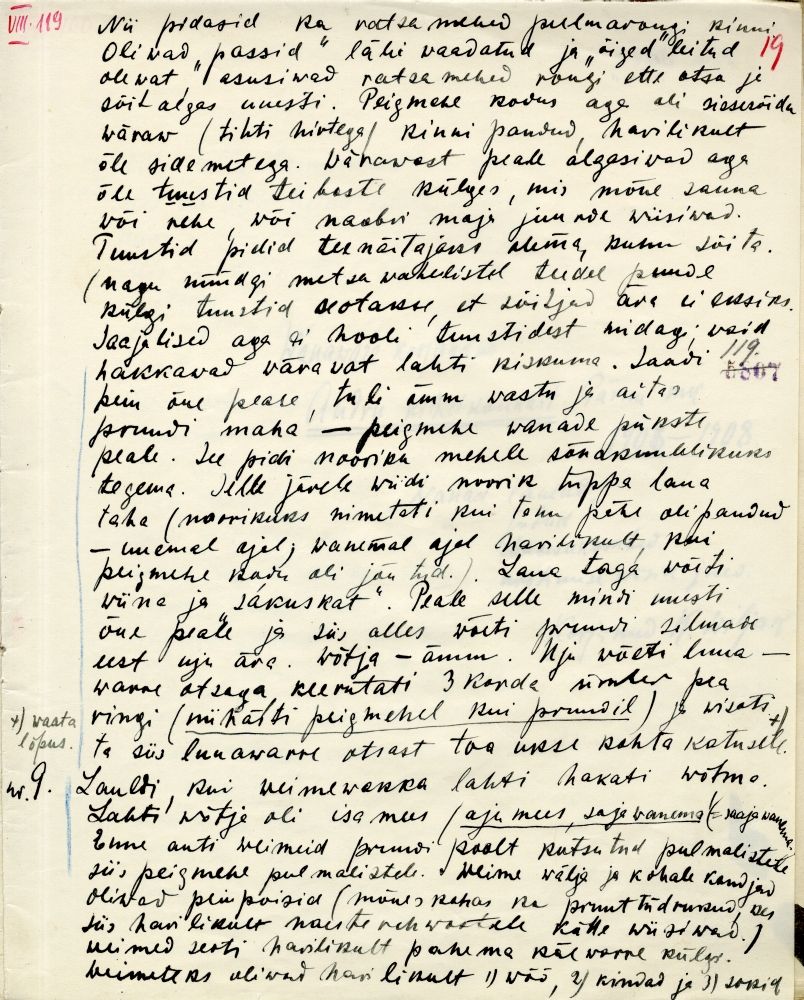 VIII. 119
Nii pidasid ka ratsamehed pulmarongi kinni.
19
Oliwad „passid“ läbi waadatud ja „õiged“ leitud
olewat, asusiwad ratsamehed rongi ette otsa ja
sõit algas uuesti. Peigmehe kodus aga oli sissesõidu
wäraw (tihti hirtega) kinni pandud, harilikult
õle sidemetega. Wärawast peale algasiwad aga
õle tuustid teibaste külges, mis mõne sauna
wõi rehe, wõi naabri maja juurde wiisiwad.
Tuustid pidid teenäitajaks olema, kuhu sõita.
(nagu nüüdgi metsawahelistel teedel puude
külgi tuustid seotakse, et sõitjad ära ei eksiks.
Saajalised aga ei hooli tuustidest midagi, waid
hakkawad wärawat lahti kiskuma. Saadi
119.
peiu õue peale, tuli ämm wastu ja aitas
pruudi maha — peigmehe wanade pükste
peale. See pidi nooriku mehele sõnakuulelikuks
tegema. Selle järele wiidi noorik tuppa laua
taha (noorikuks nimetati kui tanu pähe oli pandud
— uuemal ajal; wanemal ajal harilikult, kui
peigmehe kodu oli jõutud.). Laua taga wõeti
wiina ja „sakuskat“. Peale selle mindi uuesti
õue peale ja siis alles wõeti pruudi silmade
eest uju ära. Wõtja — ämm. Uju wõeti luua —
warre otsaga, keerutati 3 korda ümber pea
ringi (niihästi peigmehel kui pruudil) ja wisati +)
+) waata
lõpus.
ta siis luuawarre otsast toa ukse kohta katusele.
nr. 9. Lauldi, kui weimewakka lahti hakati wõtma.
Lahti wõtja oli isamees (ajumees, sajawanema (= saajawanem).
Enne anti weimeid pruudi poolt kutsutud pulmalistele
siis peigmehe pulmalistele. Weime wälja ja kohale kandjad
oliwad peiupoisid (mõnes kohas ka pruuttüdrukud, kes
siis harilikult naesterahwastele kätte wiisiwad.)
Weimed seoti harilikult pahema käewarre külge.
Weimeteks oliwad harilikult 1) wöö, 2) kindad ja 3) sokid